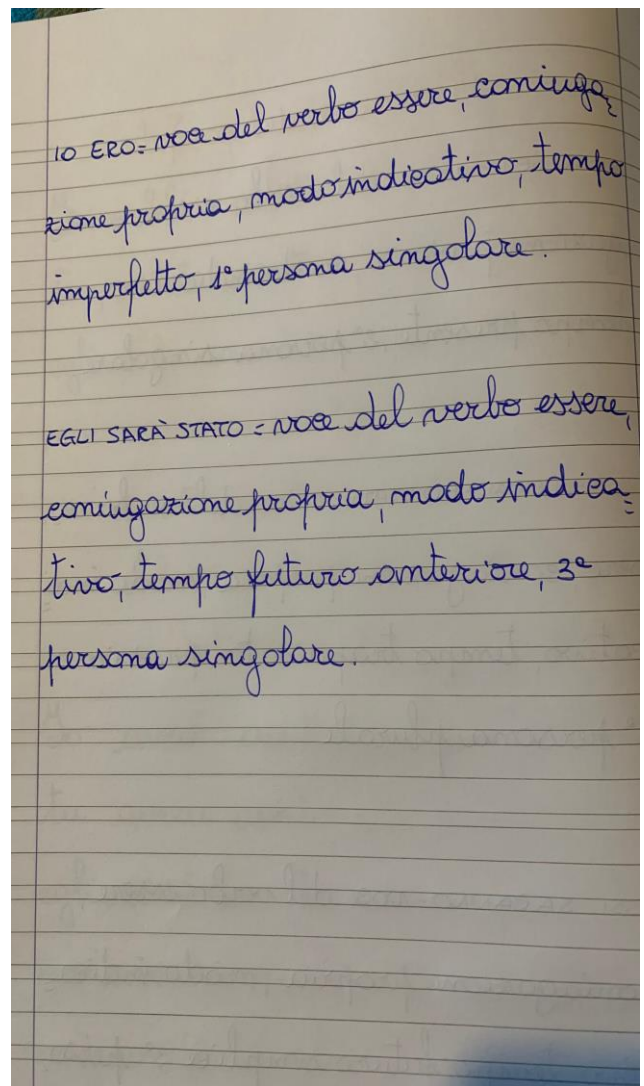 IO ERO= voce del verbo essere, coniuga=
zione propria, modo indicativo, tempo
imperfetto, 1ª persona singolare.
EGLI SARÀ STATO = voce del verbo essere,
coniugazione propria, modo indica=
tivo, tempo futuro anteriore, 3ª
persona singolare.